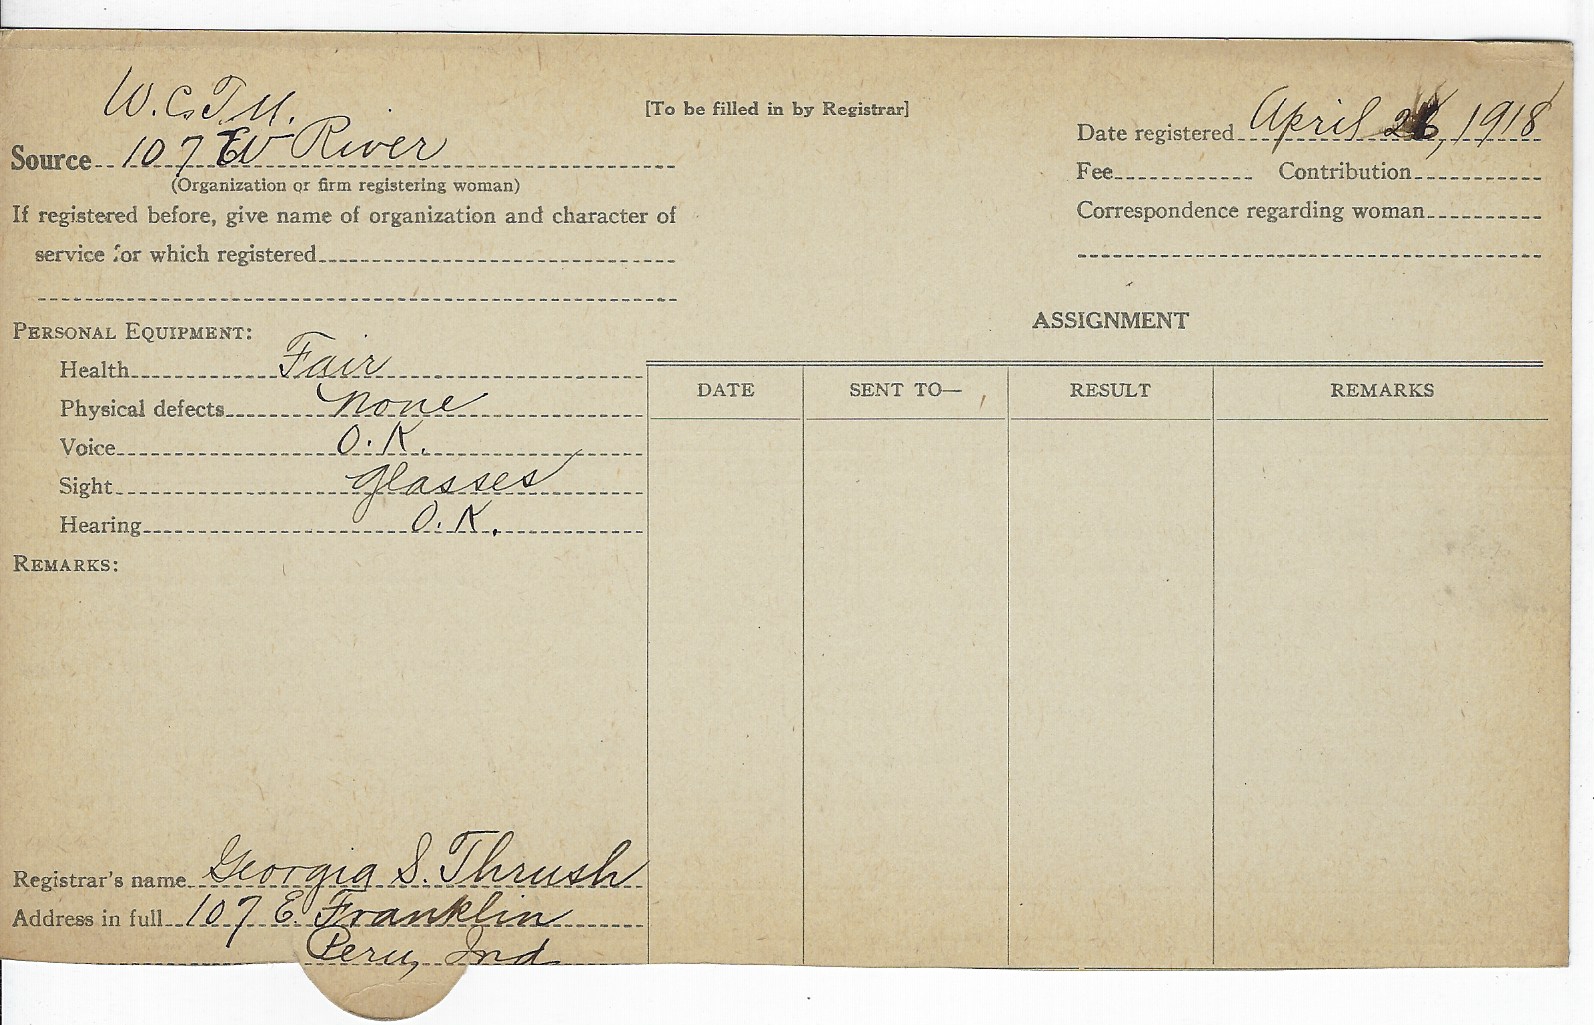 W.C.T.U.
[To be filled in by Registrar]
Source 107 W River
(Organization or firm registering woman)
If registered before, give name of organization and character of
service for which registered
Date registered April 26, 1918
Fee Contribution
Correspondence regarding woman
PERSONAL EQUIPMENT:
Health Fair
Physical defects none
Voice O.K.
Sight glasses
Hearing O.K.
REMARKS:
Registrar's name Georgia S. Thrush
Address in full 107 E. Franklin
Peru, Ind
ASSIGNMENT
DATE SENT TO— RESULT REMARKS